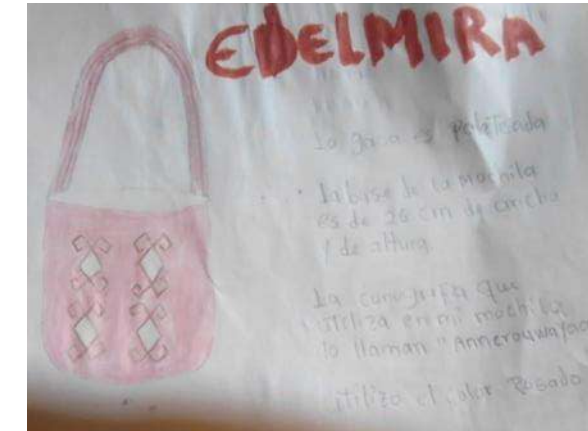 EDELMIRA
La gasa es paleteada
La base de la mochila
es de 26 cm de ancho
y de altura.
La que
utiliza en mi mochila
lo llaman "
utilizo el color Rosado